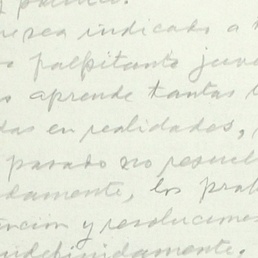 y público.
sea indicado a
palpitante juve
aprende tantas
das en realidades,
pasado no resuel
damente, los prob
ución y resoluciones
indefinidamente.